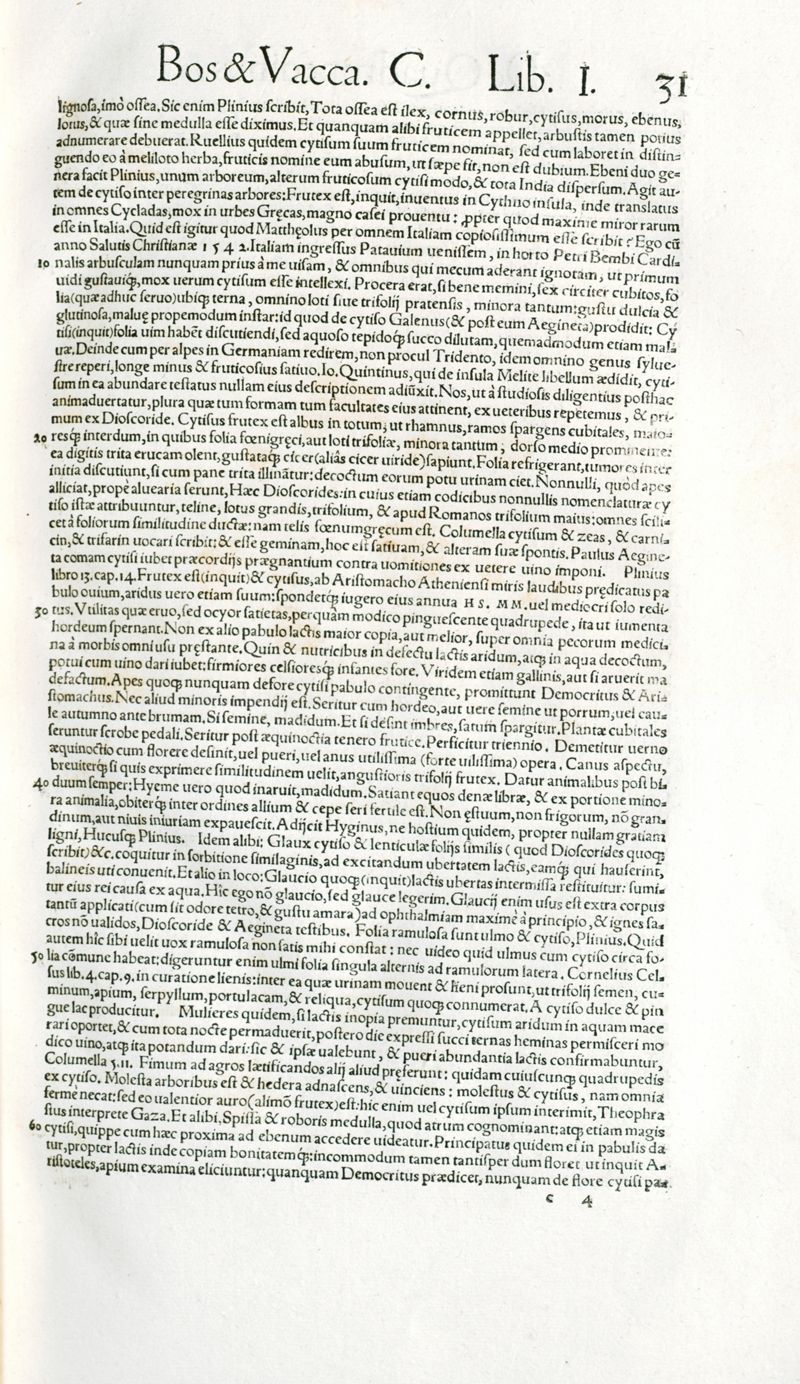 Bos & Vacca. C. Lib. I. 31
lignosa, imò ossea. Sic enim Plinius scribit, Tota ossea est ilex, cornus, robur, cytisus, morus, ebenus,
lotus, & quæ sine medulla esse diximus. Et quanquam alibi fruticem appellet, arbustis tamen potius
adnumerare debuerat. Ruellius quidem cytisum suum fruticem nominat, sed cum laboret in distin-
guendo eo à meliloto herba, fruticis nomine eum abusum, ut sæpe fit, non est dubium. Ebeni duo ge-
nera facit Plinius, unum arboreum, alterum fruticosum cytisi modo, & tota India dispersum. Agit au-
tem de cytiso inter peregrinas arbores: Frutex est, inquit, inuentus in Cythno insula, inde translatus
in omnes Cycladas, mox in urbes Gręcas, magno casei prouentu: ꝓpter quod maxime miror rarum
esse in Italia. Quid est igitur quod Matthęolus per omnem Italiam copiosissimum esse scribit? Ego cũ
anno Salutis Christianæ 1542. Italiam ingressus Patauium uenissem, in horto Petri Bembi Cardi-
10 nalis arbusculam nunquam prius à me uisam, & omnibus qui mecum aderant ignotam, ut primum
uidi gustauiq́;, mox uerum cytisum esse intellexi. Procera erat, si bene memini, sex circiter cubitos, fo
lia (quæ adhuc seruo) ubiq; terna, omnino loti siue trifolij pratensis, minora tantum: gustu dulcia &
glutinosa, maluę propemodum instar: id quod de cytiso Galenus (& post eum Aegineta) prodidit: Cy
tisi (inquit) folia uim habẽt discutiendi, sed aquoso tepidoq́; succo dilutam, quemadmodum etiam mal
uæ. Deinde cum per alpes in Germaniam redirem, non procul Tridento, idem omnino genus sylue-
stre reperi, longe minus & fruticosius satiuo. Io. Quintinus, qui de insula Melite libellum ædidit, cyti-
sum in ea abundare testatus nullam eius descriptionem adiũxit. Nos, ut à studiosis diligentius posthac
animaduertatur, plura quæ tum formam tum facultates eius attinent, ex ueteribus repetemus, & pri-
mum ex Dioscoride. Cytisus frutex est albus in totum, ut rhamnus, ramos spargens cubitales, maio-
20 resq́; interdum, in quibus folia fœnigręci, aut loti trifoliæ, minora tantum, dorso medio prominente:
ea digitis trita erucam olent, gustataq́; cicer (aliâs cicer uiride) sapiunt. Folia refrigerant, tumores inter
initia discutiunt, si cum pane trita illinãtur: decoctum eorum potu urinam ciet. Nonnulli, quòd apes
alliciat, propè aluearia serunt, Hæc Dioscorides: in cuius etiam codicibus nonnullis nomenclaturæ cy
tiso istæ attribuuntur, teline, lotus grandis, trifolium, & apud Romanos trifolium maius: omnes scili-
cet à foliorum similitudine ductæ: nam telis fœnumgręcum est. Columella cytisum & zeas, & carni-
cin, & trifarin uocari scribit: & esse geminam, hoc est satiuam, & alteram suæ spontis. Paulus Aegine-
ta comam cytisi iubet præcordijs prægnantium contra uomitiones ex uetere uino imponi. Plinius
libro 13. cap. 14. Frutex est (inquit) & cytisus, ab Aristomacho Atheniensi miris laudibus prędicatus pa
bulo ouium, aridus uero etiam suum: spondetq́; iugero eius annua HS. MM. uel mediocri solo redi-
30 tus. Vtilitas quæ eruo, sed ocyor satietas, perquàm modico pinguescente quadrupede, ita ut iumenta
hordeum spernant. Non ex alio pabulo lactis maior copia, aut melior, super omnia pecorum medici-
na à morbis omni usu pręstante. Quin & nutricibus in defectu lactis aridum, atq; in aqua decoctum,
potui cum uino dari iubet: firmiores celsioresq́; infantes fore. Viridem etiam gallinis, aut si aruerit ma
defactum. Apes quoq; nunquam defore cytisi pabulo contingente, promittunt Democritus & Ari-
stomachus. Nec aliud minoris impendij est. Seritur cum hordeo, aut uere semine ut porrum, uel cau-
le autumno ante brumam. Si semine, madidum. Et si desint imbres, satum spargitur. Plantæ cubitales
seruntur scrobe pedali. Seritur post æquinoctia tenero frutice. Perficitur triennio. Demetitur uerno
æquinoctio cum florere desinit, uel pueri, uel anus utilissima (forte uilissima) opera. Canus aspectu,
breuiterq́; si quis exprimere similitudinem uelit, angustioris trifolij frutex. Datur animalibus post bi-
40 duum semper: Hyeme uero quod inaruit, madidum. Satiant equos denæ libræ, & ex portione mino-
ra animalia, obiterq́; inter ordines allium & cepe seri fertile est. Non ęstuum, non frigorum, nō gran-
dinum, aut niuis iniuriam expauescit. Adijcit Hyginus, ne hostium quidem, propter nullam gratiam
ligni, Hucusq; Plinius. Idem alibi: Glaux cytiso & lenticulæ folijs similis (quod Dioscorides quoq;
scribit) &c. coquitur in sorbitione similaginis, ad excitandum ubertatem lactis, eamq́; qui hauserint,
balineis uti conuenit. Et alio in loco: Glaucio quoq; (inquit) lactis ubertas intermissa restituitur: sumi-
tur eius rei causa ex aqua. Hîc ego nō glaucio, sed glauce legerim. Glaucij enim usus est extra corpus
tantū applicati (cum sit odore tetro, & gustu amara) ad ophthalmiam maximè à principio, & ignes sa-
cros nō ualidos, Dioscoride & Aegineta testibus. Folia ramulosa sunt ulmo & cytiso, Plinius. Quid
autem hîc sibi uelit uox ramulosa non satis mihi constat: nec uideo quid ulmus cum cytiso circa fo-
50 lia cōmune habeat: digeruntur enim ulmi folia singula alternis ad ramulorum latera. Cornelius Cel-
sus lib. 4. cap. 9. in curatione lienis: inter ea quæ urinam mouent & lieni prosunt, ut trifolij semen, cu-
minum, apium, serpyllum, portulacam, & reliqua, cytisum quoq; connumerat. A cytiso dulce & pin
gue lac producitur. Mulieres quidem, si lactis inopia premuntur, cytisum aridum in aquam mace
rari oportet, & cum tota nocte permaduerit, postero die expressi succi ternas heminas permisceri mo
dico uino, atq; ita potandum dari: sic & ipsæ ualebunt, & pueri abundantia lactis confirmabuntur,
Columella 5. 11. Fimum ad agros lætificandos alij aliud pręferunt: quidam cuiuscunq; quadrupedis
ex cytiso. Molesta arboribus est & hedera adnascens, & uinciens: molestus & cytisus, nam omnia
ferme necat: sed eo ualentior auro (alimō frutex) est: hic enim uel cytisum ipsum interimit, Theophra
stus interprete Gaza. Et alibi, Spissa & roboris medulla, quod atrum cognominant: atq; etiam magis
60 cytisi, quippe cum hæc proxima ad ebenum accedere uideatur. Principatus quidem ei in pabulis da
tur, propter lactis inde copiam bonitatemq́;: incommodum tamen tantisper dum floret ut inquit A-
ristoteles, apium examina eliciuntur: quanquam Democritus prædicet, nunquam de flore cytisi pa-
c 4